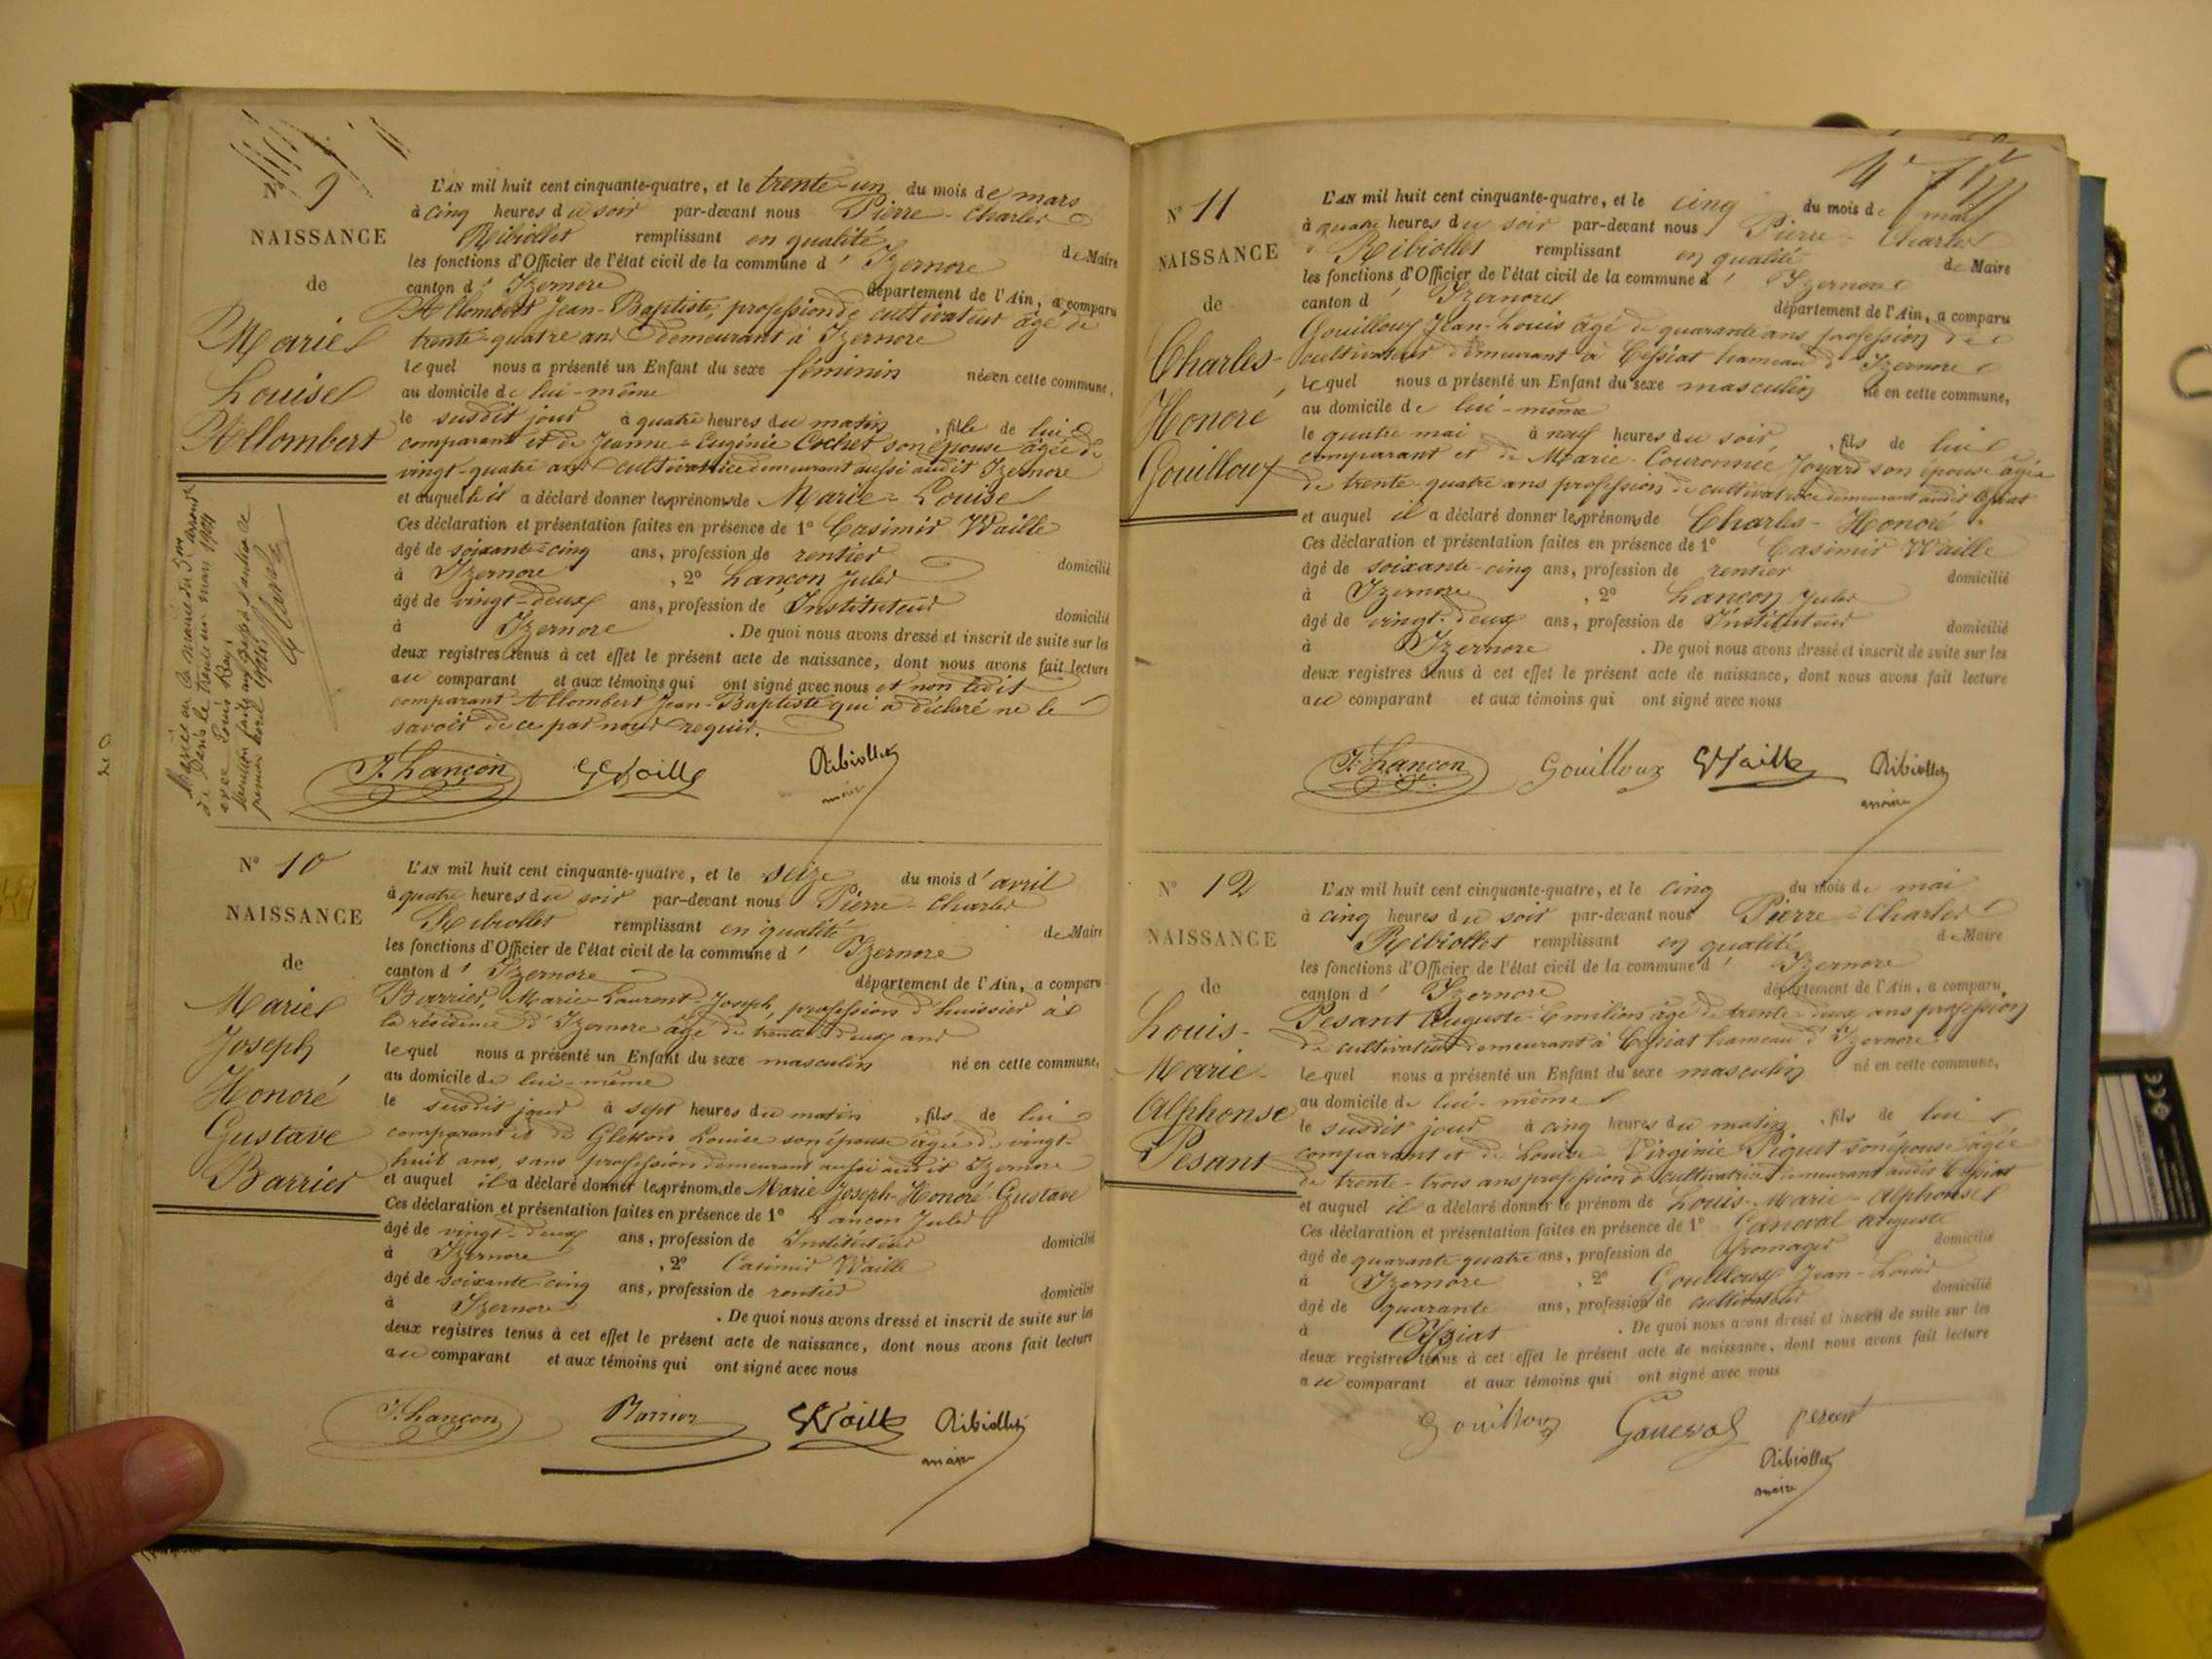 N° 9
NAISSANCE
de
Marie
Louise
Allombert
L'AN mil huit cent cinquante-quatre, et le trente-un du mois de mars
à cinq heures du soir par-devant nous Pierre-Charles
Ribiollet remplissant en qualité de Maire
les fonctions d'Officier de l'état civil de la commune d' Izernore
canton d' Izernore département de l'Ain, a comparu
Allombert Jean-Baptiste, profession de cultivateur âgé de
trente-quatre ans demeurant à Izernore
lequel nous a présenté un Enfant du sexe féminin née en cette commune,
au domicile de lui-même
le susdit jour à quatre heures du matin, fille de lui
comparant et de Jeanne-Eugénie Cochet son épouse âgée de
vingt-quatre ans cultivatrice demeurant aussi audit Izernore
et auquel il a déclaré donner les prénoms de Marie-Louise
Ces déclaration et présentation faites en présence de 1° Casimir Waille
âgé de soixante-cinq ans, profession de rentier domicilié
à Izernore, 2° Lançon Jules
âgé de vingt-deux ans, profession de Instituteur domicilié
à Izernore. De quoi nous avons dressé et inscrit de suite sur les
deux registres tenus à cet effet le présent acte de naissance, dont nous avons fait lecture
au comparant et aux témoins qui ont signé avec nous et non ledit
comparant Allombert Jean-Baptiste qui a déclaré ne le
savoir de ce par nous requis.
J. Lançon Waille Ribiollet
maire
Mariée à la mairie du 5me arront
de Paris le trente un mars 1904
avec Louis Rey
N° 10
NAISSANCE
de
Marie
Joseph
Honoré
Gustave
Barrier
L'AN mil huit cent cinquante-quatre, et le seize du mois d'avril
à quatre heures du soir par-devant nous Pierre-Charles
Ribiollet remplissant en qualité de Maire
les fonctions d'Officier de l'état civil de la commune d' Izernore
canton d' Izernore département de l'Ain, a comparu
Barrier, Marie-Laurent-Joseph, profession d'huissier à
la résidence d'Izernore âgé de trente-deux ans
lequel nous a présenté un Enfant du sexe masculin né en cette commune,
au domicile de lui-même
le susdit jour à sept heures du matin, fils de lui
comparant et de Gletton Louise son épouse âgée de vingt-
huit ans, sans profession demeurant aussi audit Izernore
et auquel il a déclaré donner les prénoms de Marie-Joseph-Honoré-Gustave
Ces déclaration et présentation faites en présence de 1° Lançon Jules
âgé de vingt-deux ans, profession de Instituteur domicilié
à Izernore, 2° Casimir Waille
âgé de soixante-cinq ans, profession de rentier domicilié
à Izernore. De quoi nous avons dressé et inscrit de suite sur les
deux registres tenus à cet effet le présent acte de naissance, dont nous avons fait lecture
au comparant et aux témoins qui ont signé avec nous
J. Lançon Barrier Waille Ribiollet
maire
N° 11
NAISSANCE
de
Charles-
Honoré
Gouilloux
L'AN mil huit cent cinquante-quatre, et le cinq du mois de mai
à quatre heures du soir par-devant nous Pierre-Charles
Ribiollet remplissant en qualité de Maire
les fonctions d'Officier de l'état civil de la commune d' Izernore
canton d' Izernore département de l'Ain, a comparu
Gouilloux Jean-Louis âgé de quarante ans profession de
cultivateur demeurant à Cessiat hameau d'Izernore
lequel nous a présenté un Enfant du sexe masculin né en cette commune,
au domicile de lui-même
le quatre mai à neuf heures du soir, fils de lui
comparant et de Marie-Couronnée Joyard son épouse âgée
de trente-quatre ans profession de cultivatrice demeurant audit Cessiat
et auquel il a déclaré donner les prénoms de Charles-Honoré.
Ces déclaration et présentation faites en présence de 1° Casimir Waille
âgé de soixante-cinq ans, profession de rentier domicilié
à Izernore, 2° Lançon Jules
âgé de vingt-deux ans, profession de Instituteur domicilié
à Izernore. De quoi nous avons dressé et inscrit de suite sur les
deux registres tenus à cet effet le présent acte de naissance, dont nous avons fait lecture
au comparant et aux témoins qui ont signé avec nous
J. Lançon Gouilloux Waille Ribiollet
maire
N° 12
NAISSANCE
de
Louis-
Marie-
Alphonse
Pesant
L'AN mil huit cent cinquante-quatre, et le cinq du mois de mai
à cinq heures du soir par-devant nous Pierre-Charles
Ribiollet remplissant en qualité de Maire
les fonctions d'Officier de l'état civil de la commune d' Izernore
canton d' Izernore département de l'Ain, a comparu
Pesant Auguste-Emilion âgé de trente-deux ans profession
de cultivateur demeurant à Cessiat hameau d'Izernore
lequel nous a présenté un Enfant du sexe masculin né en cette commune,
au domicile de lui-même
le susdit jour à cinq heures du matin, fils de lui
comparant et de Louise-Virginie Piquet son épouse âgée
de trente-trois ans profession de cultivatrice demeurant audit Cessiat
et auquel il a déclaré donner le prénom de Louis-Marie-Alphonse
Ces déclaration et présentation faites en présence de 1° Ganeval auguste
âgé de quarante quatre ans, profession de fromager domicilié
à Izernore, 2° Gouilloux Jean-Louis
âgé de quarante ans, profession de cultivateur domicilié
à Cessiat. De quoi nous avons dressé et inscrit de suite sur les
deux registres tenus à cet effet le présent acte de naissance, dont nous avons fait lecture
au comparant et aux témoins qui ont signé avec nous
Gouilloux Ganeval pesant
Ribiollet
maire